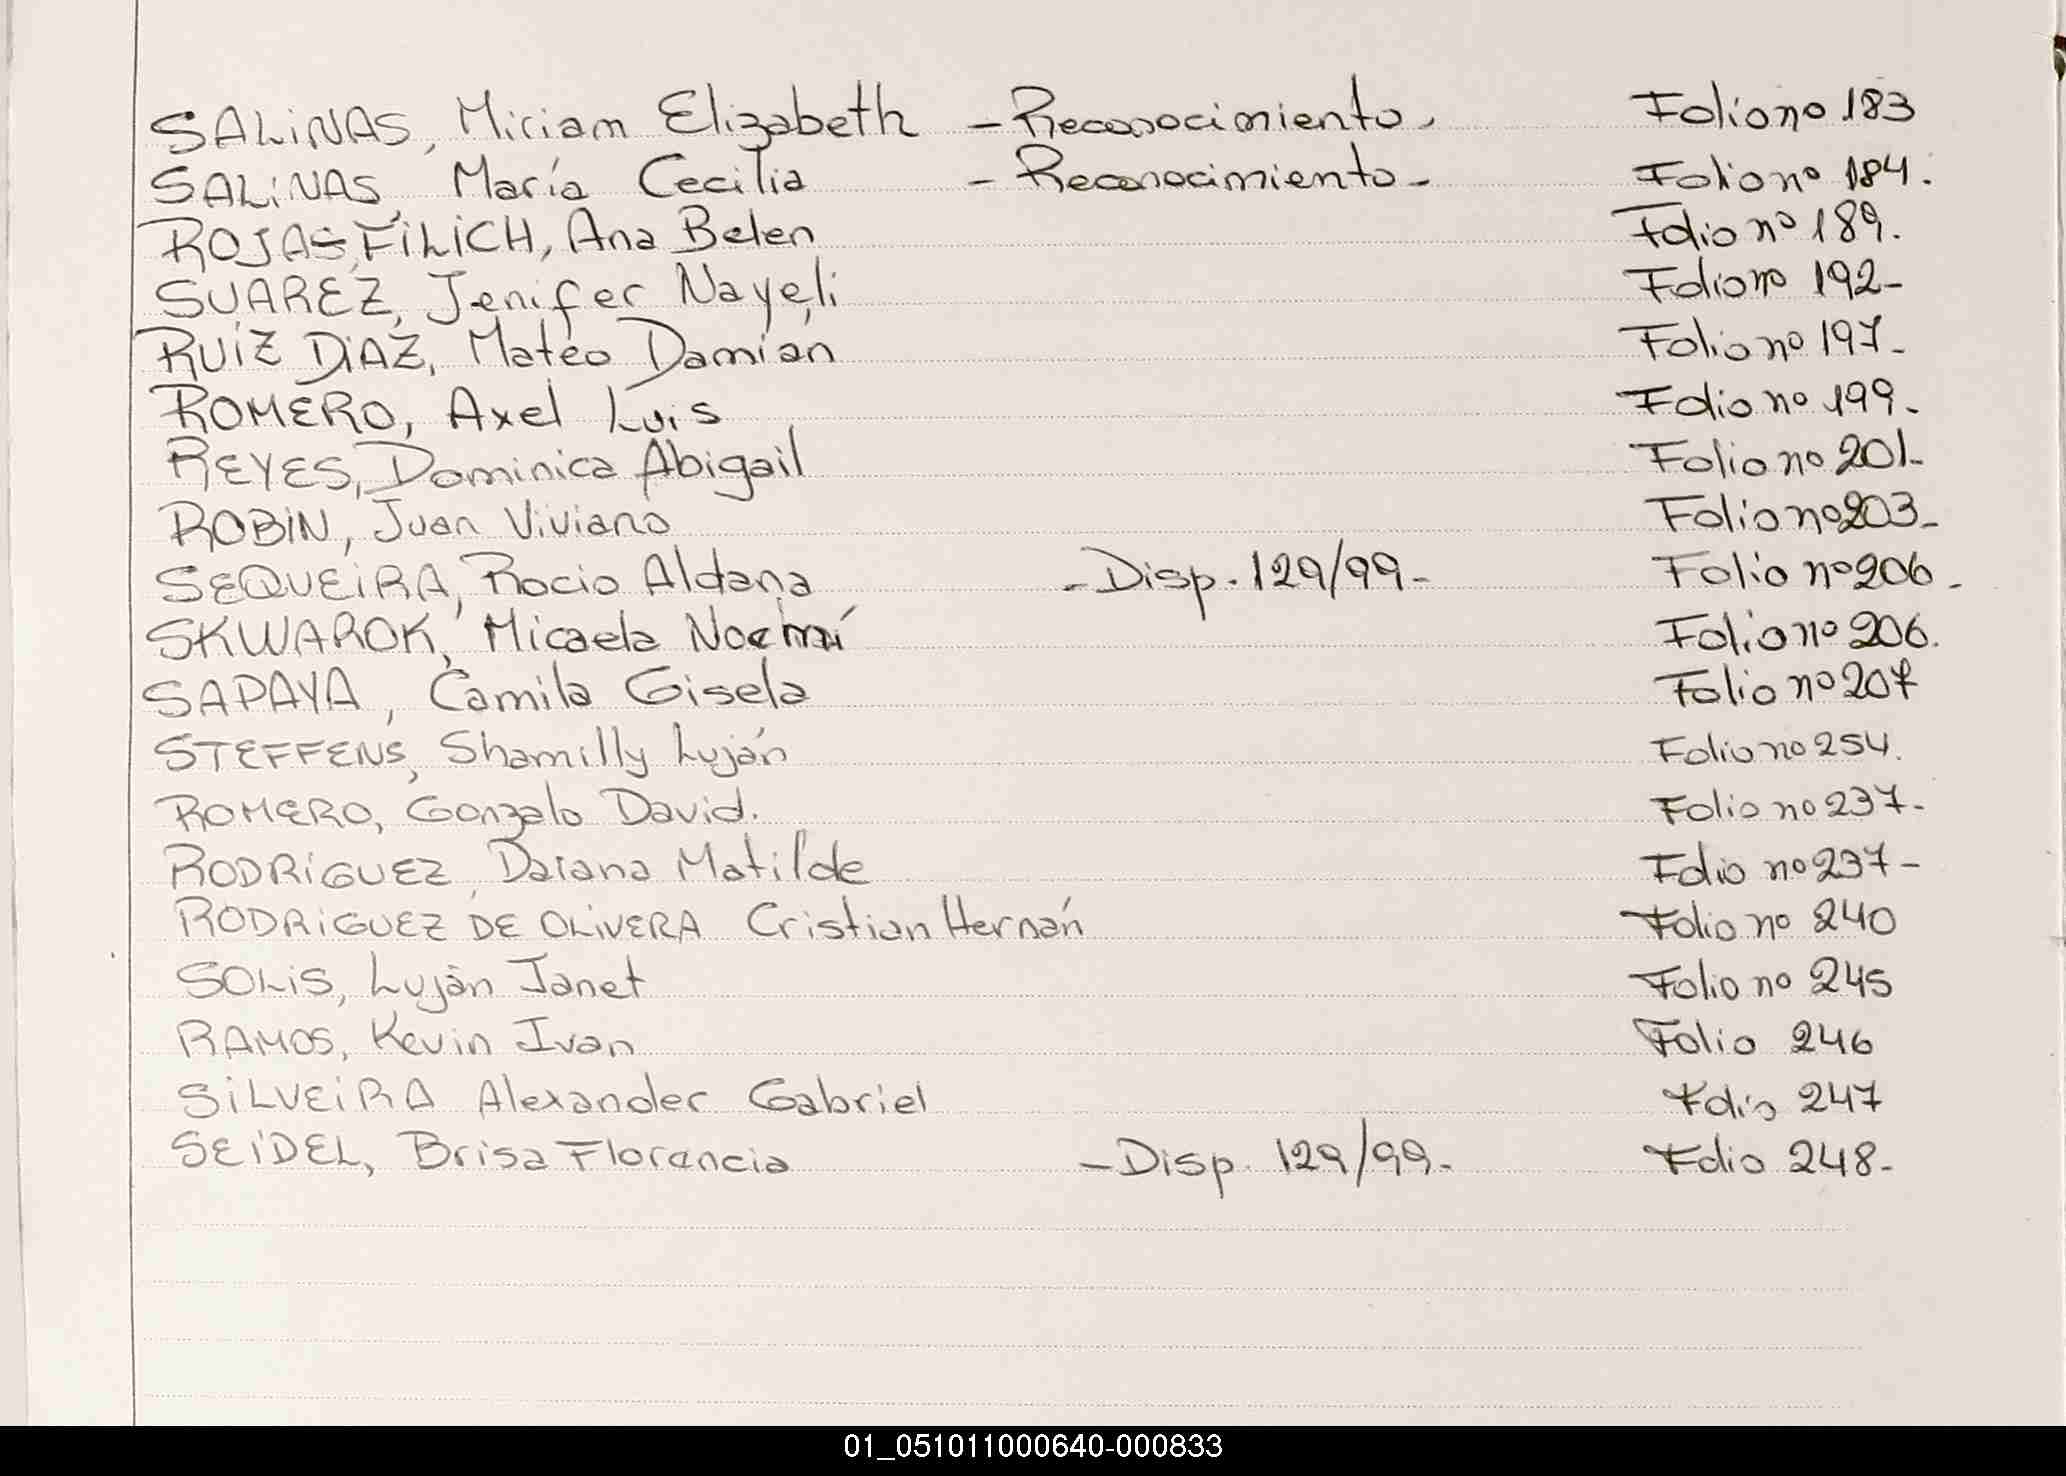 SALINAS, Miriam Elizabeth - Reconocimiento. Folio nº 183
SALINAS, María Cecilia - Reconocimiento - Folio nº 184.
ROJAS FILICH, Ana Belen Folio nº 189.
SUAREZ, Jenifer Nayeli Folio nº 192-
RUIZ DIAZ, Mateo Damián Folio nº 197-
ROMERO, Axel Luis Folio nº 199.
REYES, Dominica Abigail Folio nº 201-
ROBIN, Juan Viviano Folio nº 203-
SEQUEIRA, Rocio Aldana - Disp. 129/99- Folio nº 206-
SKWAROK, Micaela Noemí Folio nº 206.
SAPAYA, Camila Gisela Folio nº 207
STEFFENS, Shamilly Luján Folio nº 254.
ROMERO, Gonzalo David. Folio nº 237-
RODRIGUEZ, Daiana Matilde Folio nº 237-
RODRIGUEZ DE OLIVERA Cristian Hernán Folio nº 240
SOLIS, Luján Janet Folio nº 245
RAMOS, Kevin Ivan Folio 246
SILVEIRA Alexander Gabriel Folio 247
SEIDEL, Brisa Florencia - Disp. 129/99- Folio 248-
01_051011000640-000833